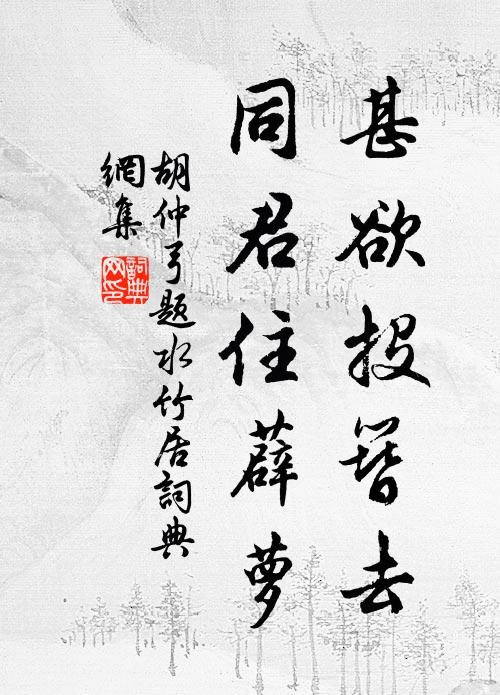 甚欲投簪去
同君住薜萝
胡仲弓题水竹居詞典
網集
詞典网印